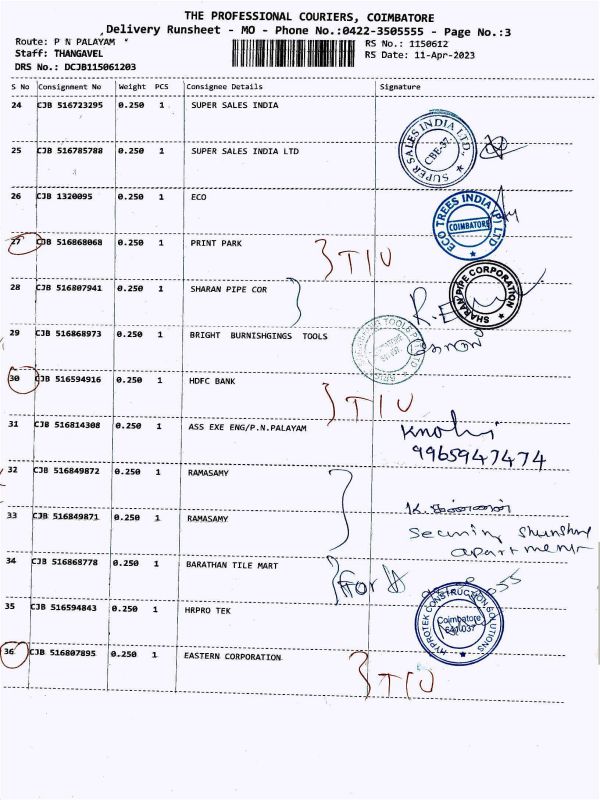 THE PROFESSIONAL COURIERS, COIMBATORE
Delivery Runsheet - MO - Phone No.:0422-3505555 - Page No.:3
Route: P N PALAYAM RS No.: 1150612
Staff: THANGAVEL RS Date: 11-Apr-2023
DRS No.: DCJB115061203
S No Consignment No Weight PCS Consignee Details Signature
24 CJB 516723295 0.250 1 SUPER SALES INDIA
SUPER SALES INDIA LTD. CBE-37. ★
25 CJB 516785788 0.250 1 SUPER SALES INDIA LTD
26 CJB 1320095 0.250 1 ECO
ECO TREES INDIA (P) LTD COIMBATORE ★
27 CJB 516868068 0.250 1 PRINT PARK
TIU
28 CJB 516807941 0.250 1 SHARAN PIPE COR
SHARAN PIPE CORPORATION ★
29 CJB 516868973 0.250 1 BRIGHT BURNISHGINGS TOOLS
30 CJB 516594916 0.250 1 HDFC BANK
TIU
31 CJB 516814308 0.250 1 ASS EXE ENG/P.N.PALAYAM
9965947474
32 CJB 516849872 0.250 1 RAMASAMY
33 CJB 516849871 0.250 1 RAMASAMY
apartment
34 CJB 516868778 0.250 1 BARATHAN TILE MART
For
35 CJB 516594843 0.250 1 HRPRO TEK
HYPROTEK CONSTRUCTION SOLUTIONS Coimbatore 641 037 ★
36 CJB 516807895 0.250 1 EASTERN CORPORATION
TIU